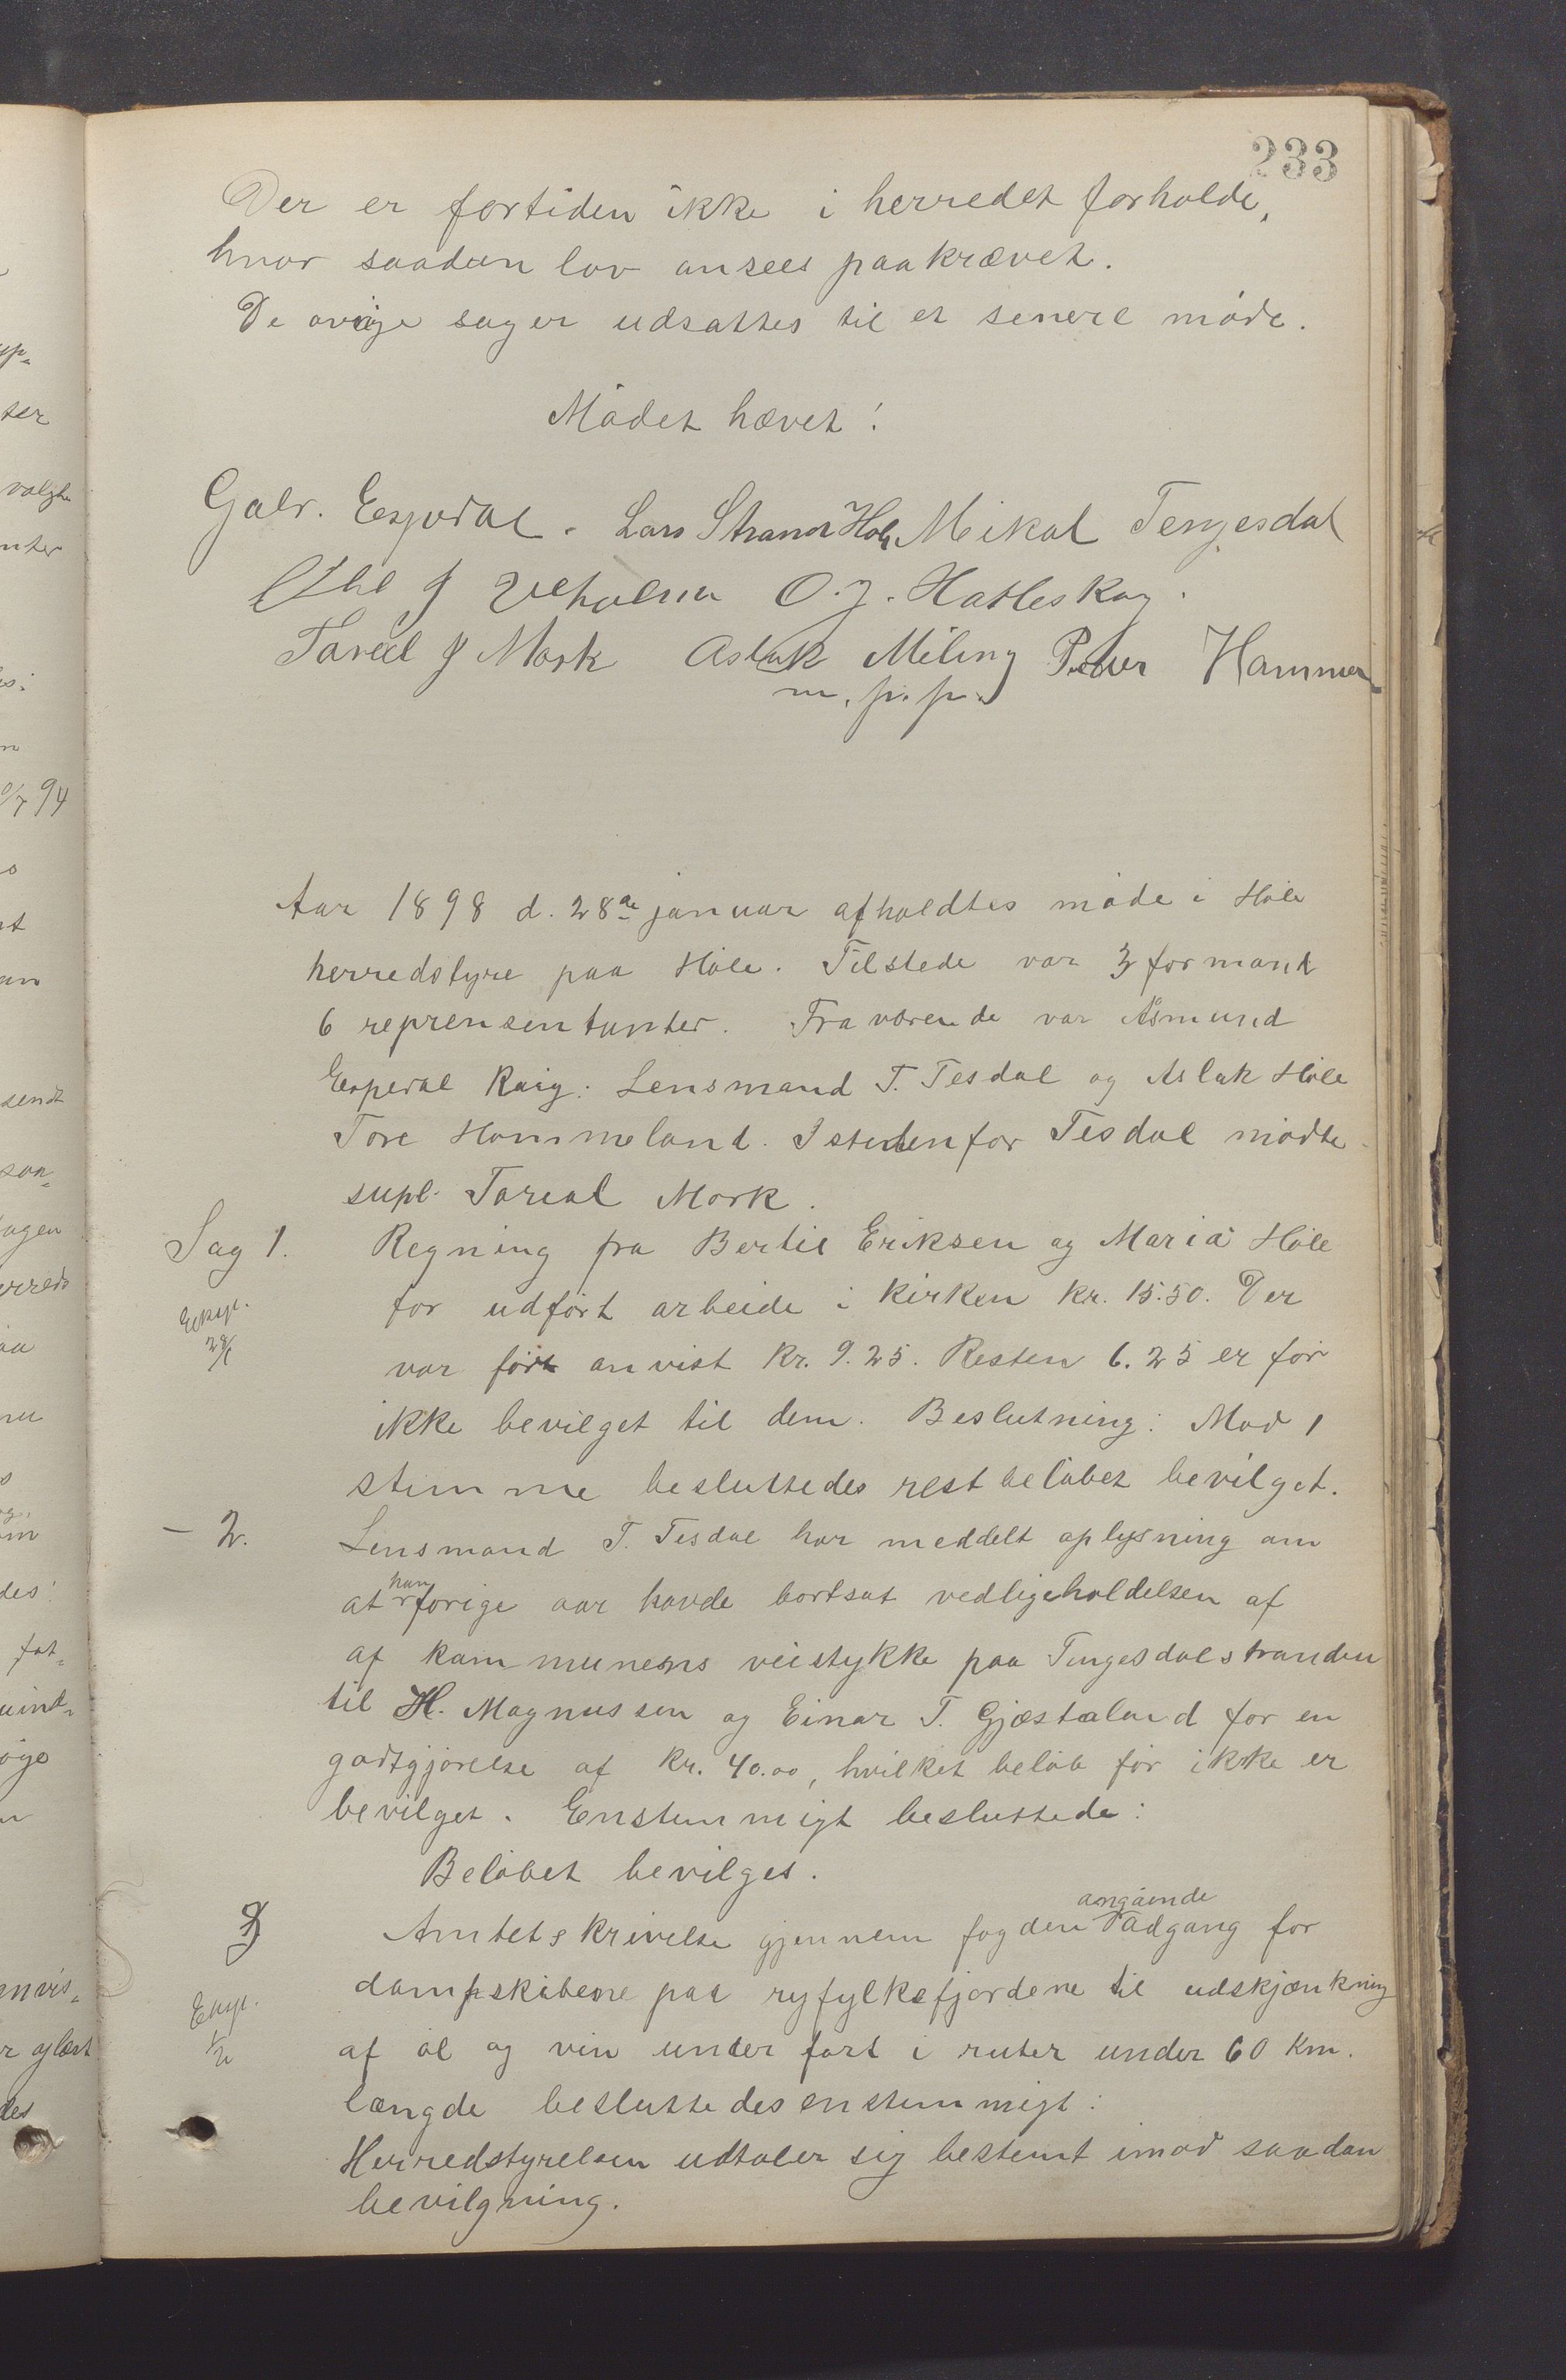 233
Der er fortiden ikke i herredet forholde,
hvor saadan lov ansees paakrævet.
De øvrige sager udsattes til et senere møde.
Mødet hævet!
Gabr. Espedal. Lars Strand Høle Mikal Tengesdal
J Veholm O. J. Hatleskog.
Toreel J Mork Aslak Meling Peder Hammer
m. p. p.
Aar 1898 d. 28de januar afholdtes møde i Høle
herredstyre paa Høle. Tilstede var 3 formænd
6 reprensentanter. Fraværende var Åsmund
Espedal Kaig. Lensmand T. Tesdal og Aslak Høle
Tore Hommeland. Istedenfor Tesdal mødte
supl. Toreal Mork.
Sag 1. Regning fra Bertil Eriksen og Maria Høle
for udført arbeide i kirken kr. 15.50. Der
Exsp.
29/1
var før anvist kr. 9.25. Resten 6.25 er før
ikke bevilget til dem. Beslutning: Mod 1
stemme besluttedes restbeløbet bevilget.
- 2. Lensmand T. Tesdal har meddelt oplysning om
at han forige aar havde bortsat vedligeholdelsen af
af kommunens veistykke paa Tengesdalstranden
til H. Magnussen og Einar T. Gjæstaland for en
godtgjørelse af kr. 40.00, hvilket beløb før ikke er
bevilget. Enstemmigt besluttede:
Beløbet bevilges.
3 Amtets krivelse gjennem fogden angående adgang for
dampskibene paa ryfylkefjordene til udskjænkning
Exsp.
1/2
af øl og vin under fart i ruter under 60 Km.
længde besluttedes enstemmigt:
Herredstyrelsen udtaler sig bestemt imod saadan
bevilgning.